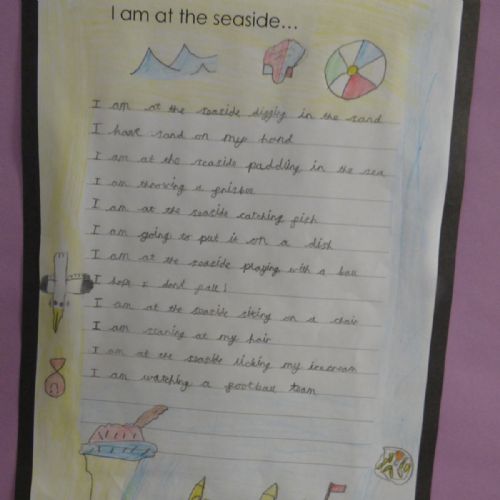 I am at the seaside...
I am at the seaside diggig in the sand
I have sand on my hand
I am at the seaside paddling in the sea
I am throwing a frisbee
I am at the seaside catching fish
I am going to put it on a dish
I am at the seaside playing with a ball
I hope I dont fall!
I am at the seaside siting on a chair
I am staring at my hair
I am at the seaside licking my icecream
I am watching a football team